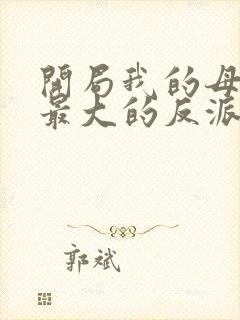 開局我的母
最大的反派
郭斌